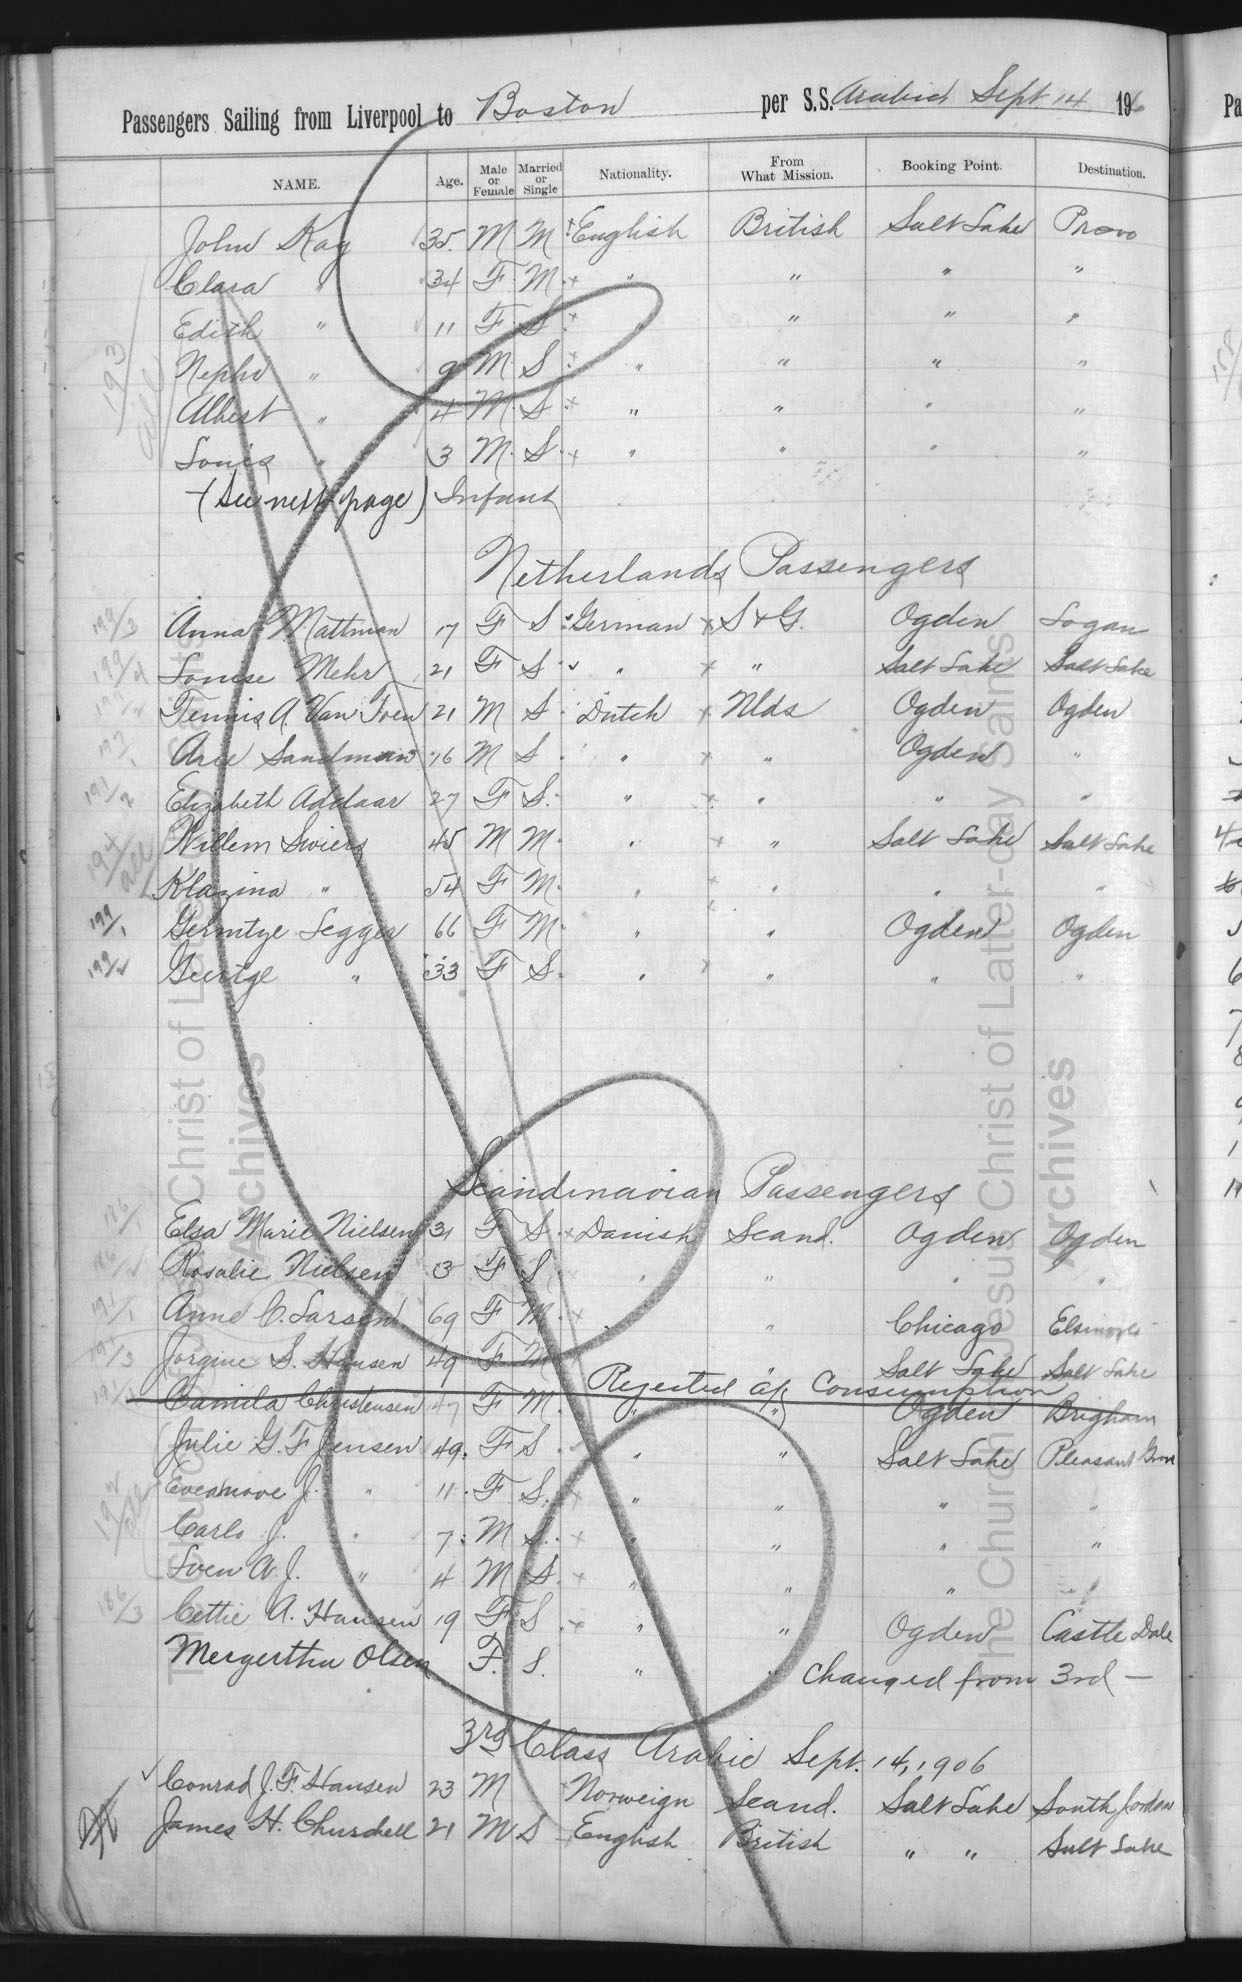 Passengers Sailing from Liverpool to Boston per S.S. Arabic Sept 14 1906
NAME. Age. Male or Female Married or Single Nationality. From What Mission. Booking Point. Destination.
John Kay 35 M M English British Salt Lake Provo
Clara " 34 F M " " " "
Edith " 11 F S " " " "
Nephi " 9 M S " " " "
Albert " 4 M S " " " "
Louis " 3 M S " " " "
(See next page) Infant
Netherlands Passengers
199/3 Anna Mattman 17 F S German S & G. Ogden Logan
199/4 Louise Mehr 21 F S " " Salt Lake Salt Lake
Tennis A. Van Tren 21 M S Dutch Nlds Ogden Ogden
Arie Sandman 16 M S " " Ogden "
Elizabeth Addaar 27 F S. " " " "
194/all Willem Swiers 45 M M " " Salt Lake Salt Lake
Klazina " 54 F M " " " "
199/1 Segger 66 F M " " Ogden Ogden
199/2 Geertge " 33 F S " " " "
Scandinavian Passengers
186/1 Elsa Marie Nielsen 31 F S Danish Scand. Ogden Ogden
186/2 Rosalie Nielsen 3 F S " " " "
191/1 Anne C. Larsen 69 F M " " Chicago Elsinore
191/3 Jorgine S. Hansen 49 F M " Salt Lake Salt Lake
Rejected a/c Consumption
Camila Christensen 47 F M " " Ogden Brigham
Julie G. F Jensen 49 F S " " Salt Lake Pleasant Grove
J. " 11 F S. " " " "
Carlo J. " 7 M S. " " " "
Sven A. J. " 4 M S " " "
186/3 Cettie A. Hansen 19 F S " " Ogden Castle Dale
Mergertha Olsen F. S. " " Changed from 3rd —
3rd Class Arabic Sept. 14, 1906
Conrad J. F. Hansen 23 M Norweign Scand. Salt Lake South Jordan
James H. Churchell 21 M S English British " " Salt Lake
The Church of Jesus Christ of Latter-day Saints
Archives
The Church of Jesus Christ of Latter-day Saints
Archives